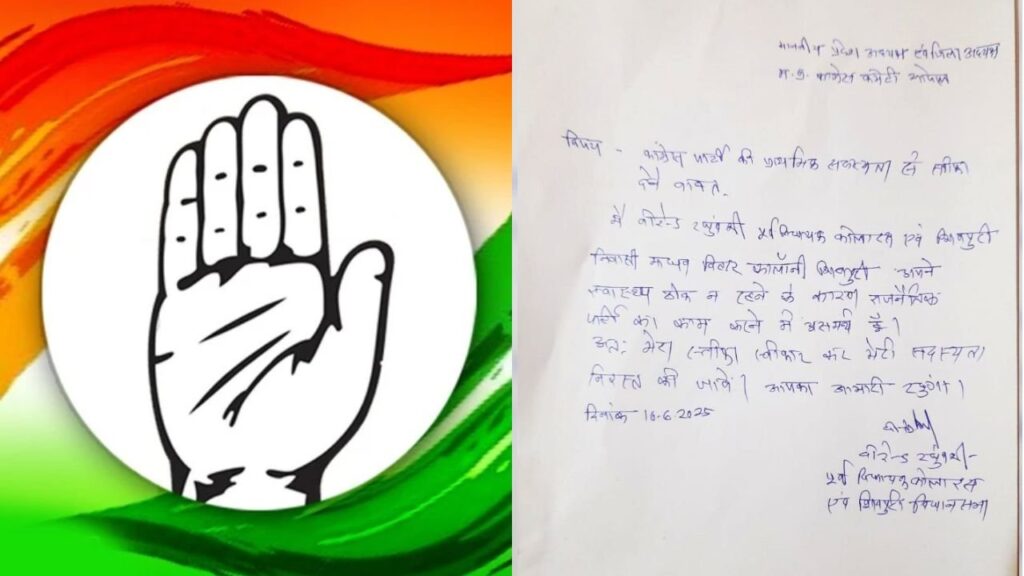 माननीय प्रदेश अध्यक्ष एवं जिला अध्यक्ष
म.प्र. कांग्रेस कमेटी भोपाल
विषय - कांग्रेस पार्टी की प्राथमिक सदस्यता से स्तीफा
देने बावत.
मैं वीरेन्द्र रघुवंशी पूर्व विधायक कोलारस एवं शिवपुरी
निवासी माधव विहार कॉलोनी शिवपुरी अपने
स्वास्थ्य ठीक न रहने के कारण राजनैतिक
पार्टी का काम करने में असमर्थ हूँ।
अतः मेरा स्तीफा स्वीकार कर मेरी सदस्यता
निरस्त की जावें। आपका आभारी रहूंगा।
दिनांक 16-6-2025
वीरेन्द्र रघुवंशी -
पूर्व विधायक कोलारस
एवं शिवपुरी विधानसभा